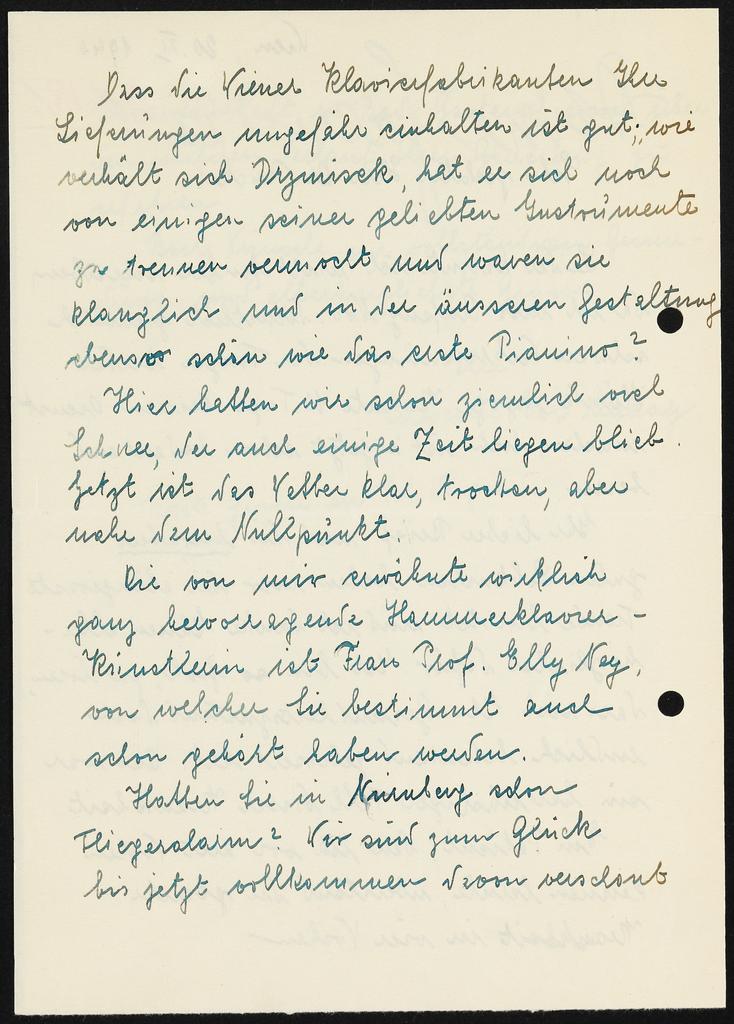 Dass die Wiener Klavierfabrikanten Ihre
Lieferungen ungefähr einhalten ist gut; wie
verhält sich Drzmisek, hat er sich noch
von einigen seiner geliebten Instrumente
zu trennen vermocht und waren sie
klanglich und in der äusseren Gestaltung
ebenso schön wie das erste Pianino?
Hier hatten wir schon ziemlich viel
Schnee, der auch einige Zeit liegen blieb.
Jetzt ist das Wetter klar, trocken, aber
nahe dem Nullpunkt.
Die von mir erwähnte wirklich
ganz hervorragende Hammerklavier-
Künstlerin ist Frau Prof. Elly Ney,
von welcher Sie bestimmt auch
schon gehört haben werden.
Hatten Sie in Nürnberg schon
Fliegeralarm? Wir sind zum Glück
bis jetzt vollkommen davon verschont